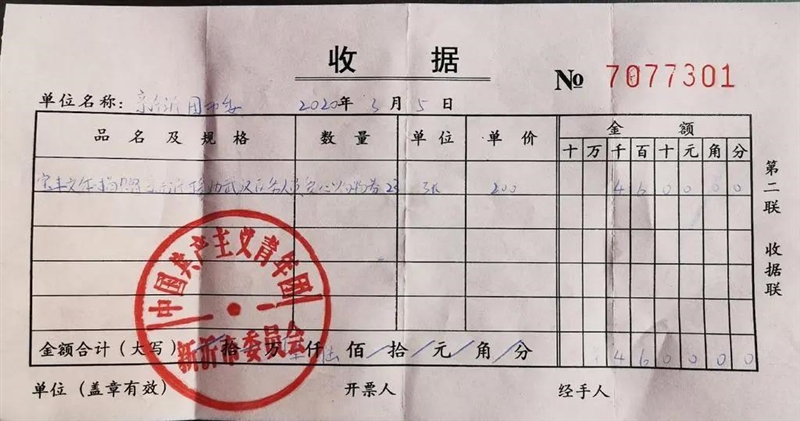 收 据
№ 7077301
单位名称: 新沂团市委 2020年3月5日
品名及规格 数量 单位 单价 金额
十 万 千 百 十 元 角 分
23 张 200 4 6 0 0 0 0
中国共产主义青年团
新沂市委员会
金额合计（大写） 拾 万 仟 陆 佰 拾 元 角 分 4 6 0 0 0 0
单位（盖章有效） 开票人 经手人
第二联 收据联